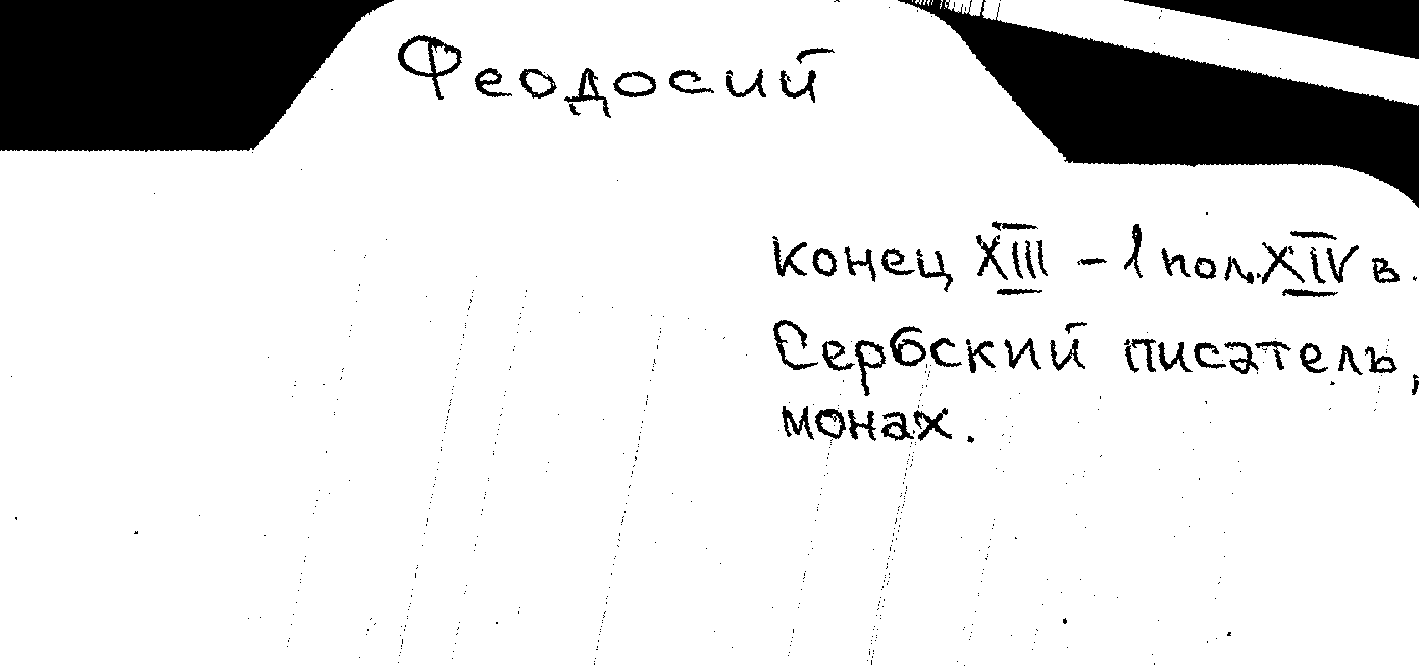 Феодосий
конец XIII – 1 пол. XIV в.
Сербский писатель,
монах.